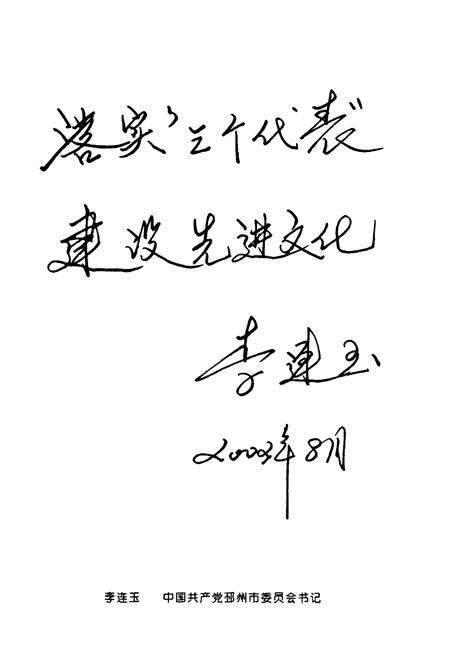 落实“三个代表”
建设先进文化
李连玉
2002年8月
李连玉 中国共产党邳州市委员会书记